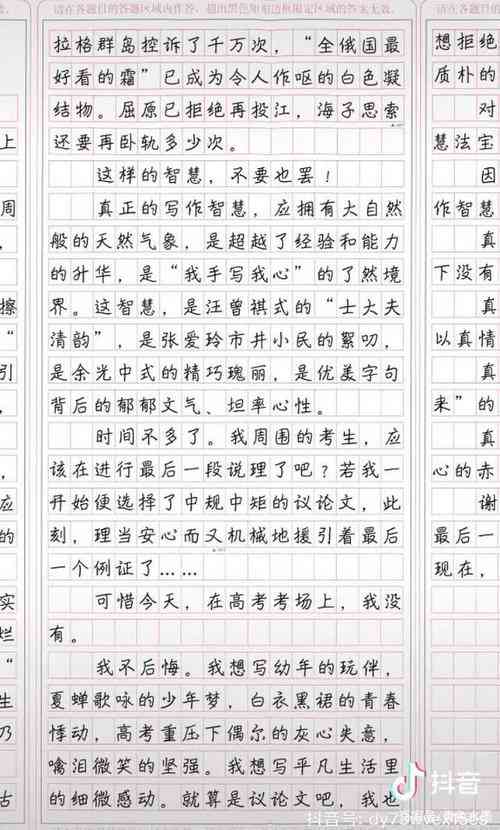 请在各题目的答题区域内作答，超出黑色矩形边框限定区域的答案无效。
拉格群岛控诉了千万次，“全俄国最
好看的霜”已成为令人作呕的白色凝
结物。屈原已拒绝再投江，海子思索
还要再卧轨多少次。
这样的智慧，不要也罢！
真正的写作智慧，应拥有大自然
般的天然气象，是超越了经验和能力
的升华，是“我手写我心”的了然境
界。这智慧，是汪曾祺式的“士大夫
清韵”，是张爱玲市井小民的絮叨，
是余光中式的精巧瑰丽，是优美字句
背后的郁郁文气、坦率心性。
时间不多了。我周围的考生，应
该在进行最后一段说理了吧？若我一
开始便选择了中规中矩的议论文，此
刻，理当安心而又机械地援引着最后
一个例证了……
可惜今天，在高考考场上，我没
有。
我不后悔。我想写幼年的玩伴，
夏蝉歌咏的少年梦，白衣黑裙的青春
悸动，高考重压下偶尔的灰心失意，
噙泪微笑的坚强。我想写平凡生活里
的细微感动。就算是议论文吧，我也
上
周
擦
“
引
应
的
实
烂
“
生
乃
古
请在各题目的
想拒绝
质朴的
对
慧法宝
因
作智慧
真
下没有
真
以真情
真
来”的
真
心的赤
谢
最后一
现在，
抖音
抖音号：